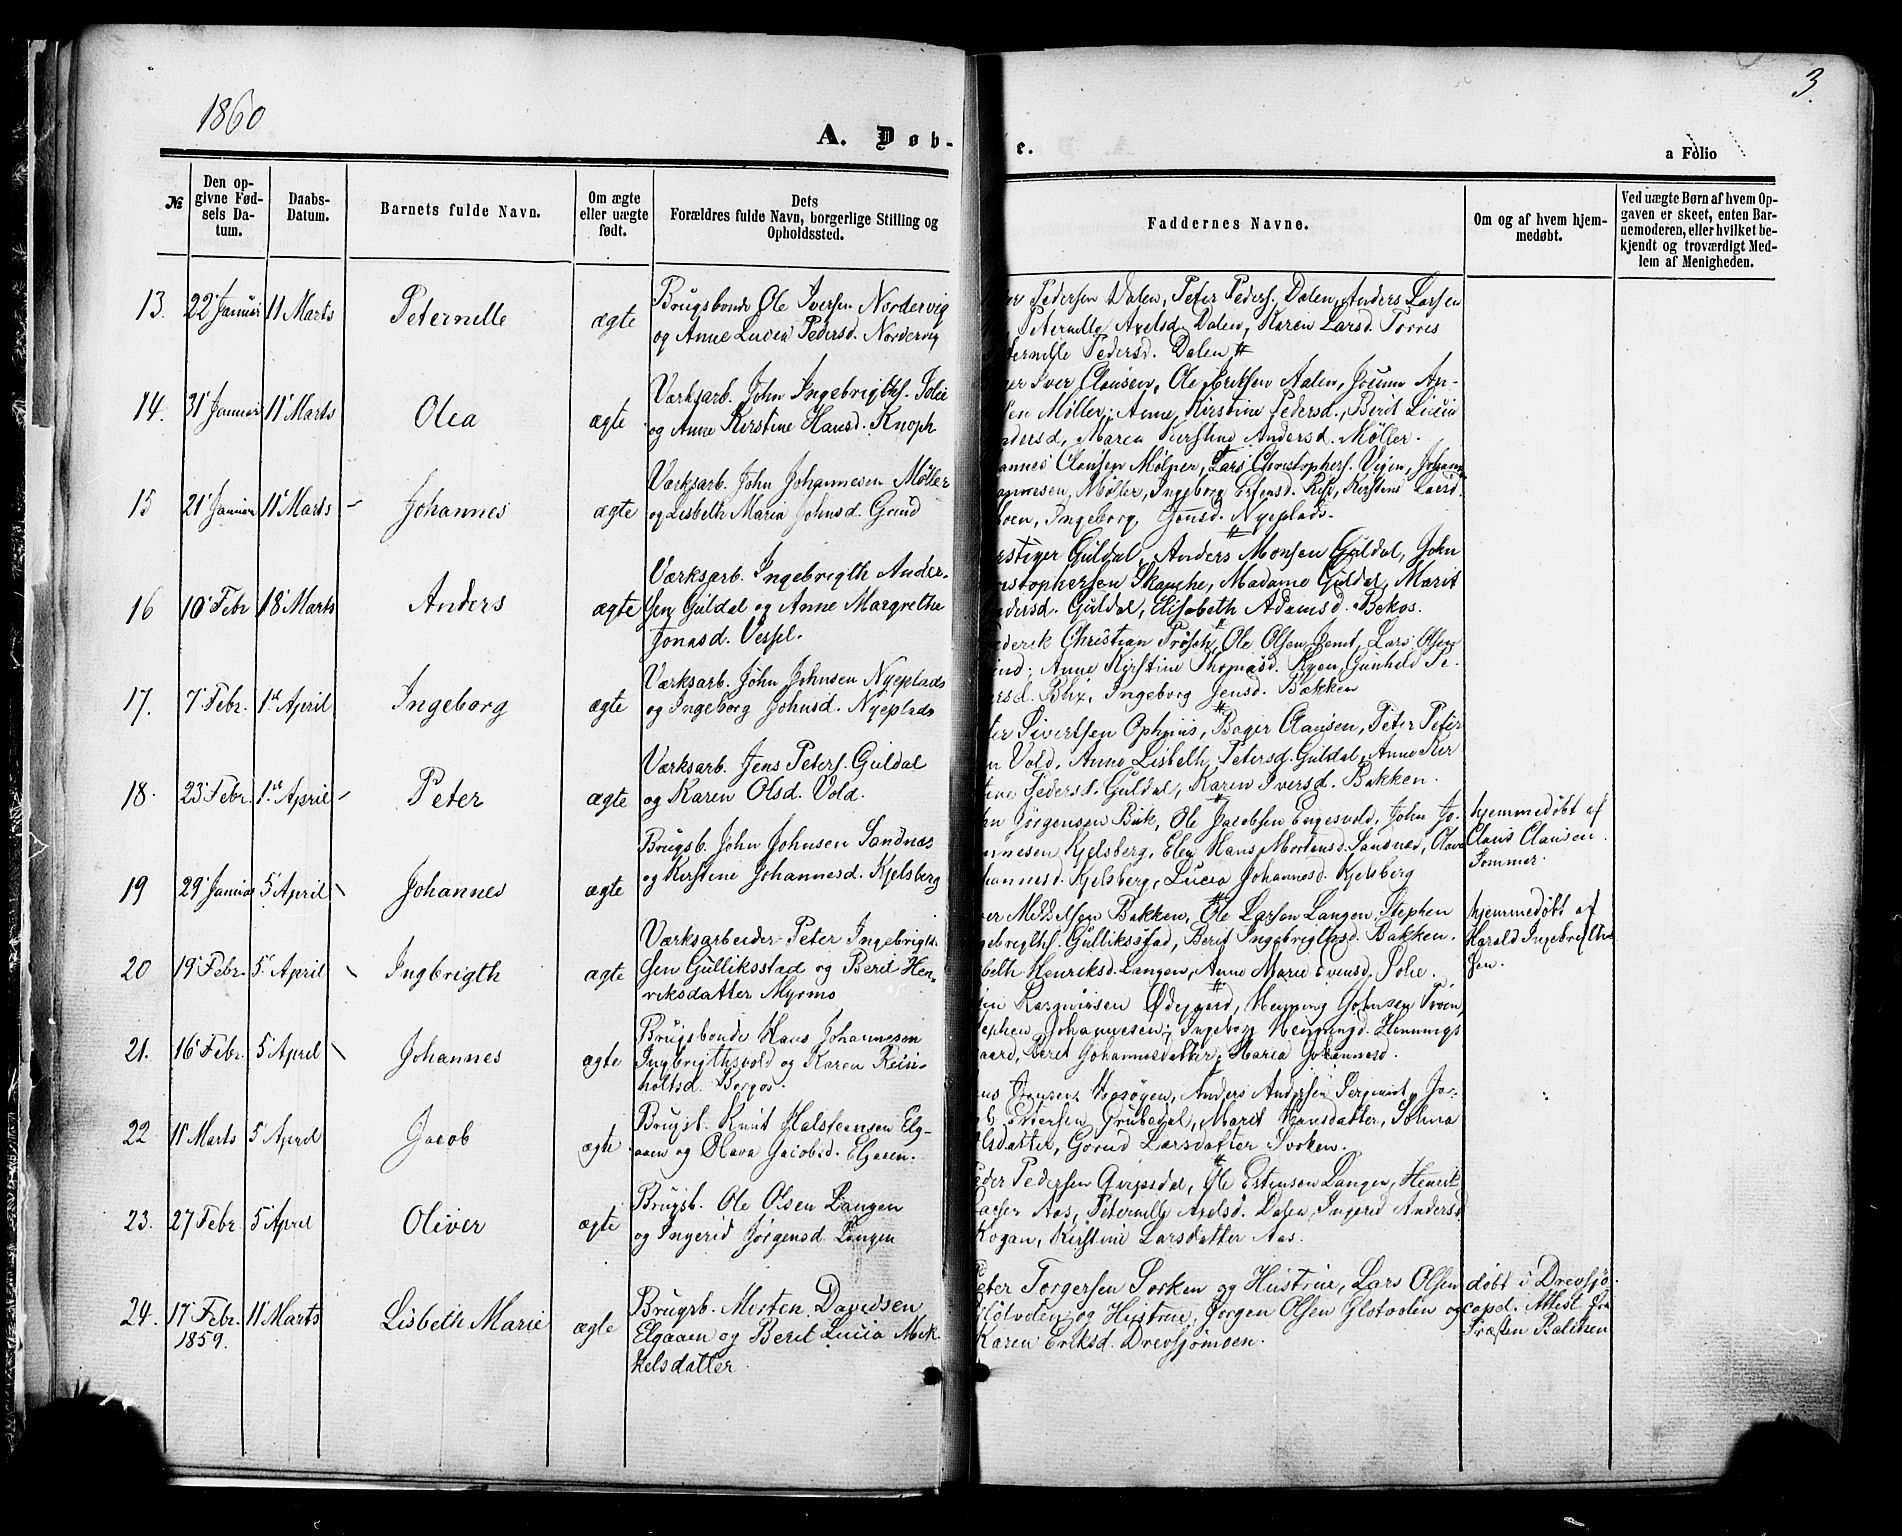 1860
3.
A. Døb-
e.
a Folio
№
Den op-
givne Fød-
sels Da-
tum.
Daabs-
Datum.
Barnets fulde Navn.
Om ægte
eller uægte
født.
Dets
Forældres fulde Navn, borgerlige Stilling og
Opholdssted.
Faddernes Navne.
Om og af hvem hjem-
medøbt.
Ved uægte Børn af hvem Op-
gaven er skeet, enten Bar-
nemoderen, eller hvilket be-
kjendt og troværdigt Med-
lem af Menigheden.
13. 22 Januar 11 Marts Peternille ægte
Brugsbonde Ole Iversen Nordervig
og Anne Lucia Pedersd. Nordervig
Pedersen Dalen, Peter Peders. Dalen, Anders Larsen
Peternille Axelsd. Dalen, Karen Larsd. Torres
Pedersd. Dalen
14. 31 Januar 11 Marts Olea ægte
Værksarb. John Ingebrigths. Solie
og Anne Kirstine Hansd. Knoph
Iver Clausen, Ole Eriksen Aalen, Jocum An-
Møller, Anne Kirstine Pedersd., Berit Lucia
Maren Kirstine Andersd. Møller.
15 21 Januar 11 Marts - Johannes ægte
Værksarb. John Johannesen Møller
og Lisbeth Maria Johnsd. Grind
Clausen Mølper, Lars Christophers. Vigen, Johan-
Møller, Ingeborg Estensd. Kirstine Larsd.
Ingeborg Jonsd. Nyeplads.
16 10 Febr 18 Marts Anders ægte
Værksarb. Ingebrigth Ander-
sen Guldal og Anne Margrethe
Jonasd. Vessel.
Stiger Guldal, Anders Monsen Guldal, John
Skanche, Madame Guldal, Marit
Guldal, Elisabeth Adamsd. Bekos.
17. 7 Febr. 1st April Ingeborg ægte
Værksarb. John Johnsen Nyeplads
og Ingeborg Johnsd. Nyeplads
Christian Prösch, Ole Olsen Jemt, Lars Olsen
Anne Kirstine Thomasd. Ryen, Gunhild Pe-
Blix, Ingeborg Jensd. Bakken
18. 23 Febr. 1st April - Peter ægte
Værksarb. Jens Peters. Guldal
og Karen Olsd. Vold.
Sivertsen Ophuus, Bager Clausen, Peter Peter
Vold, Anne Lisbeth Petersd. Guldal, Anne Kir
stine Pedersd. Guldal, Karen Iversd. Bakken.
19 29 Januar 5 April Johannes ægte
Brugsb. John Johnsen Sandnæs
og Kirstine Johannesd. Kjelsberg
Jörgensen Buk, Ole Jacobsen Engesvold, John Jo-
Kjelsberg, Elen Hans Mortensd. Sandnæs, Olava
Kjelsberg, Lucia Johannesd. Kjelsberg
hjemmedøbt af
Claus Clausen
Sommer.
20 19 Febr. 5 April Ingbrigth ægte
Værksarbeider Peter Ingebrigth-
sen Gulliksstad og Berit Hen-
riksdatter Myrmo
Bakken, Ole Larsen Langen, Stephen
Gulliksstad, Berit Ingebrigthsd. Bakken.
Henriksd. Langen, Anne Marie Evensd. Solie.
hjemmedøbt af
Harald Ingebrigth-
sen.
21. 16 Febr. 5 April Johannes ægte
Brugsbonde Hans Johannesen
Ingbrigthsvold og Karen Rein-
holtsd. Borgos.
Rasmussen Ødegaard, Henning Johnsen Troen,
Johannesen; Ingeborg Henningd. Hennings
gaard, Berit Johannesdatter, Maria Johannesd.
22 11 Marts 5 April Jacob ægte
Brugsb. Knut Halsteensen Elg-
aaen og Olava Jacobsd. Elgaaen.
Anders Andersen Sergeant, Ja-
Estersen Grubedal, Marit Hansdatter, Tolina
Gorud Larsdatter Svoken.
23. 27 Febr. 5 April Oliver ægte
Brugsb. Ole Olsen Langen
og Ingerid Jörgensd. Langen
Peder Pedersen Ole Estensen Langen, Henrik
Larsen Aas, Peternille Axelsd. Dalen, Ingerid Andersd.
Kogan, Kirstine Larsdatter Aas.
24. 17 Febr. 11 Marts Lisbeth Marie ægte
1859.
Brugsb. Morten Davidsen
Elgaaen og Berit Lucia Mek-
kelsdatter.
Peter Torgersen Sorken og Hustrue, Lars Olsen
Glotvolen og Hustrue, Jörgen Olsen Glotvolen og
Karen Eriksd. Drevsjömoen.
døbt i Drevsjö
capel. Attest fra
Præsten Balchen